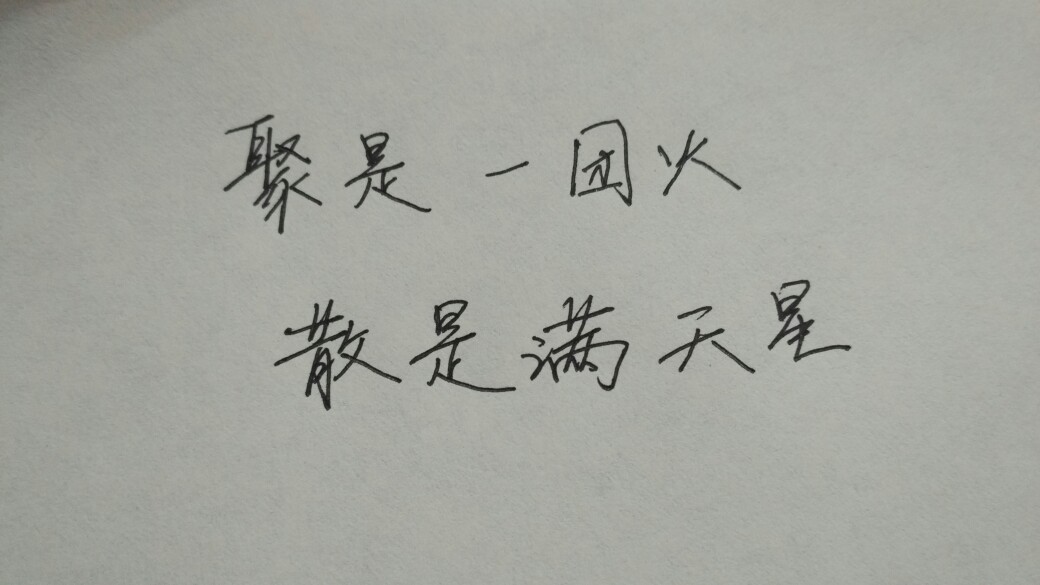 聚是一团火
散是满天星